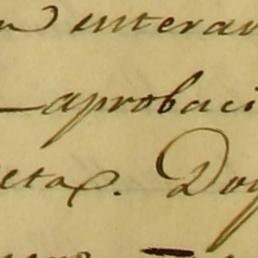 enterar
aprobaci
eta. Doy